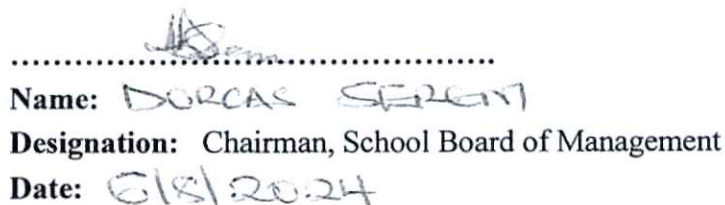 Name: DORCAS SEREM
Designation: Chairman, School Board of Management
Date: 6/8/2024